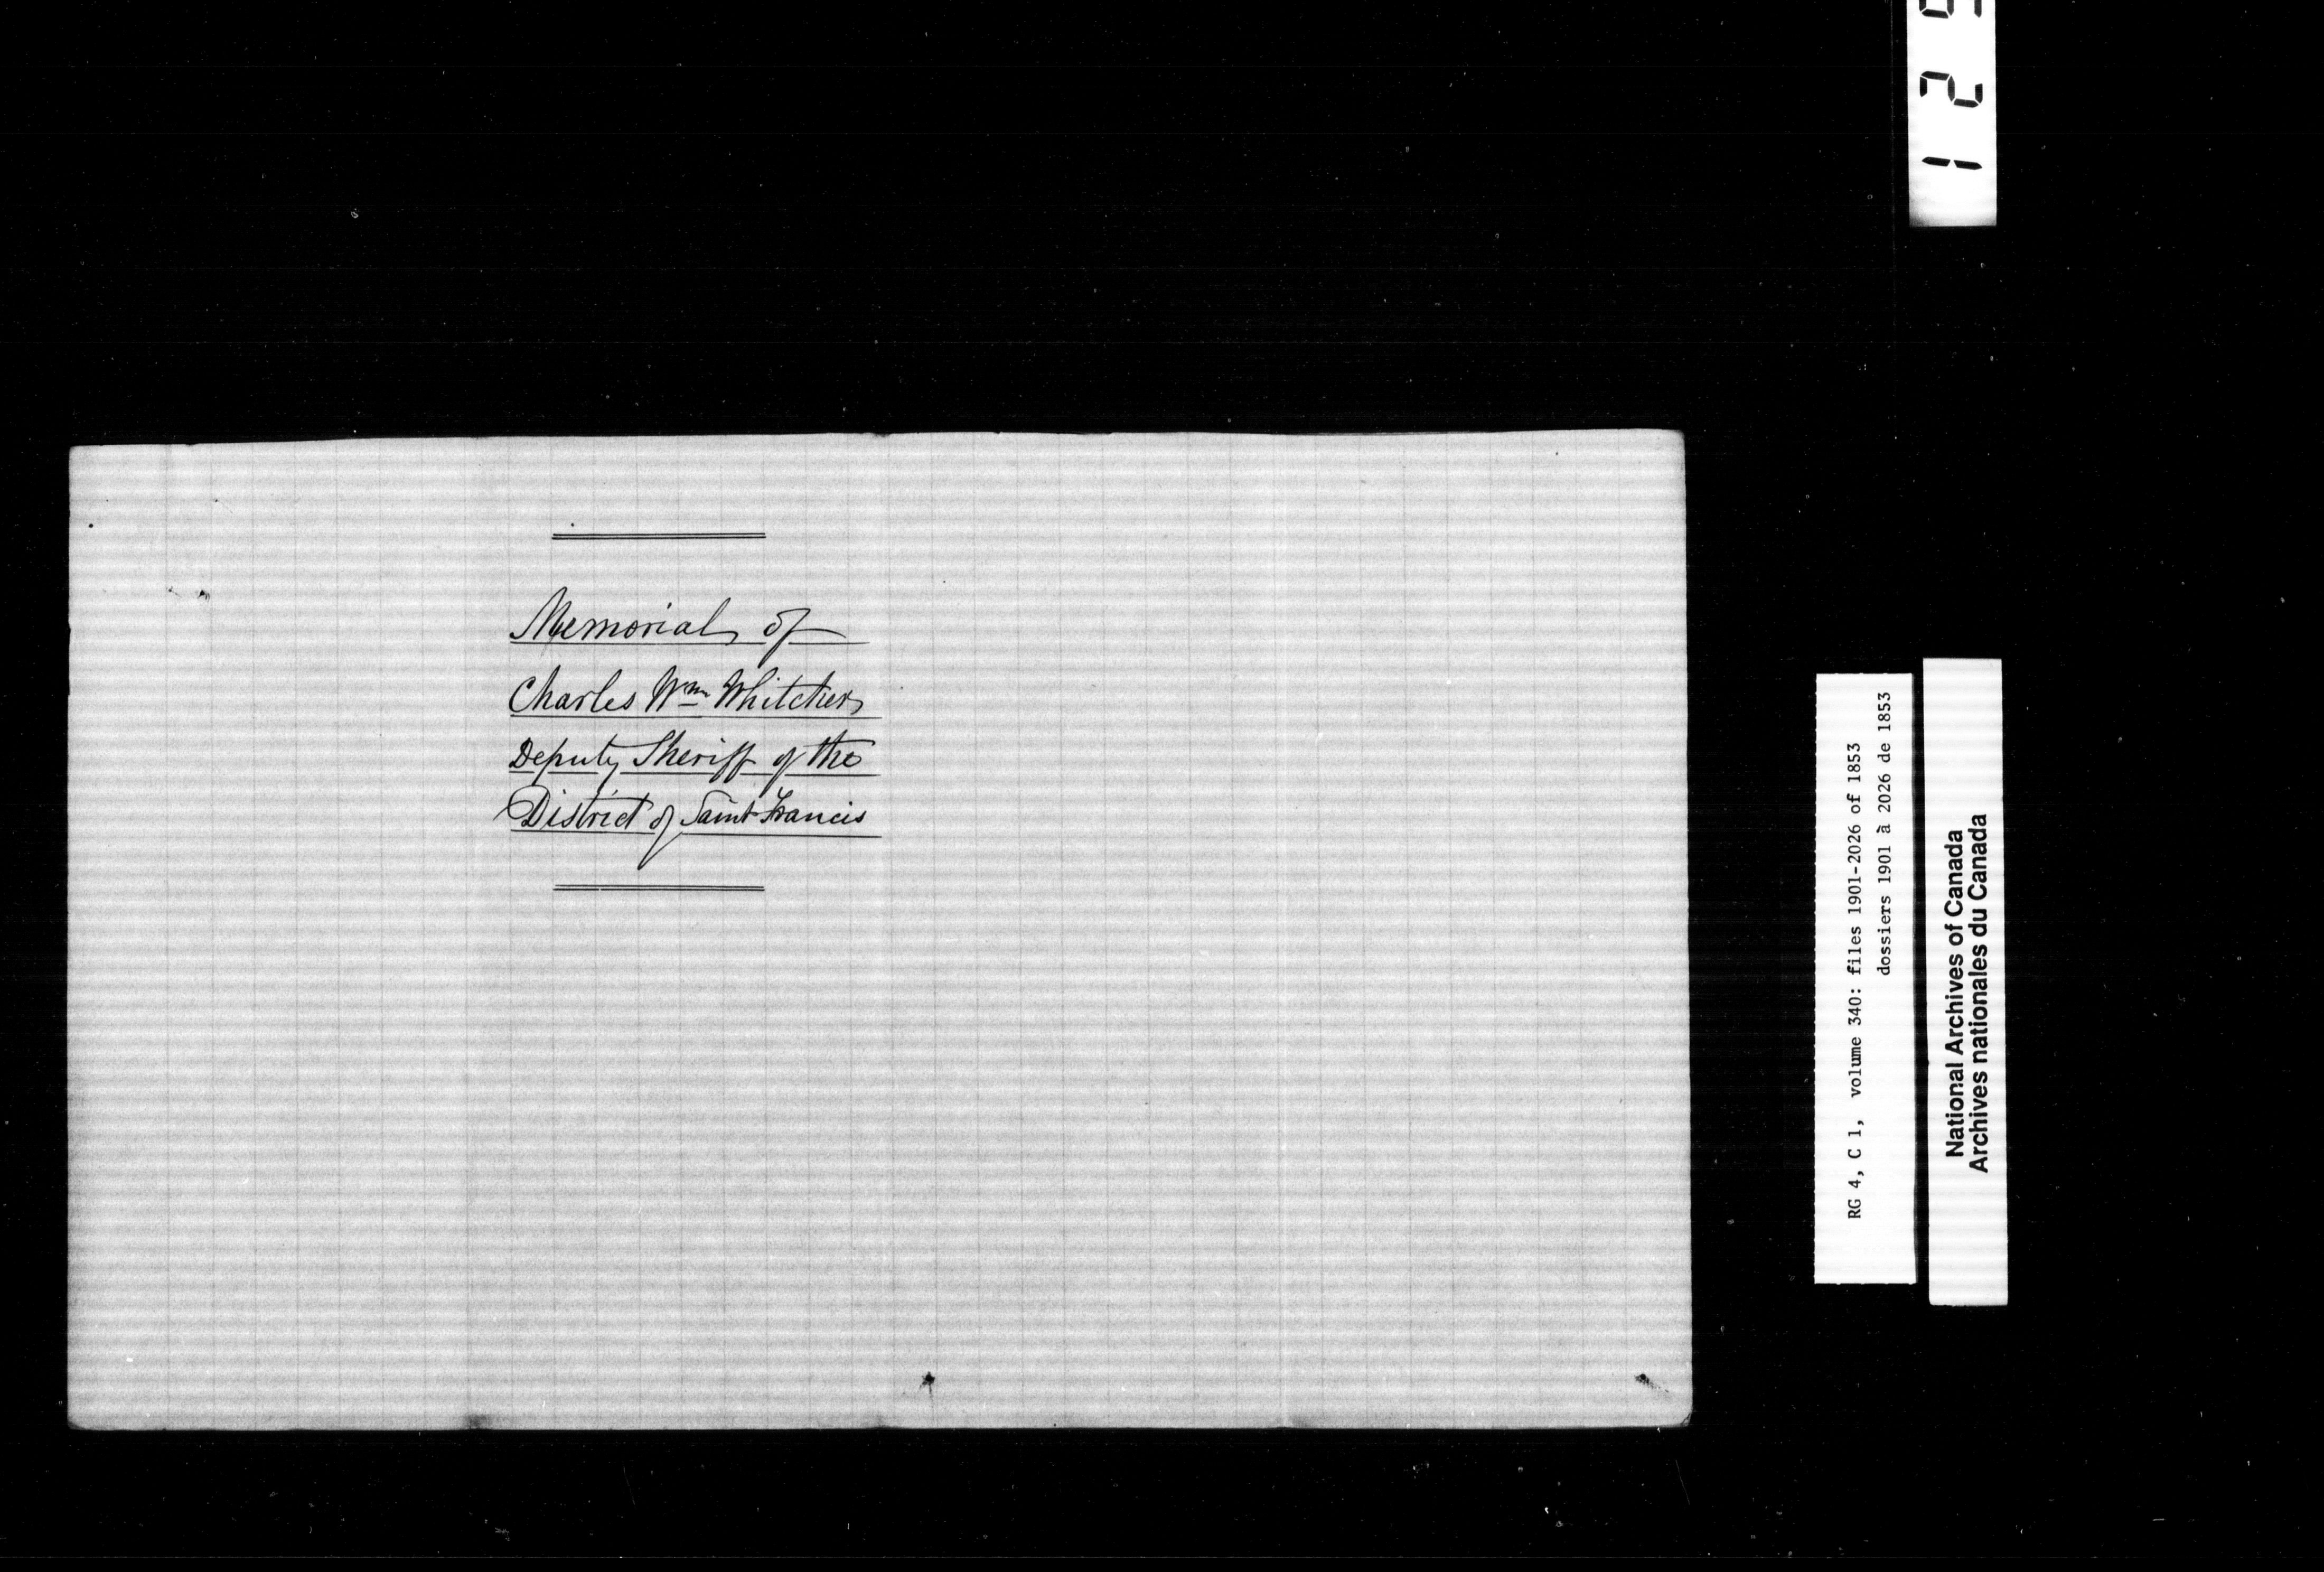 Memorial of
Charles Wm Whitcher
Deputy Sheriff of the
District of Saint Francis
RG 4, C 1, volume 340: files 1901-2026 of 1853
dossiers 1901 à 2026 de 1853
National Archives of Canada
Archives nationales du Canada
1 2